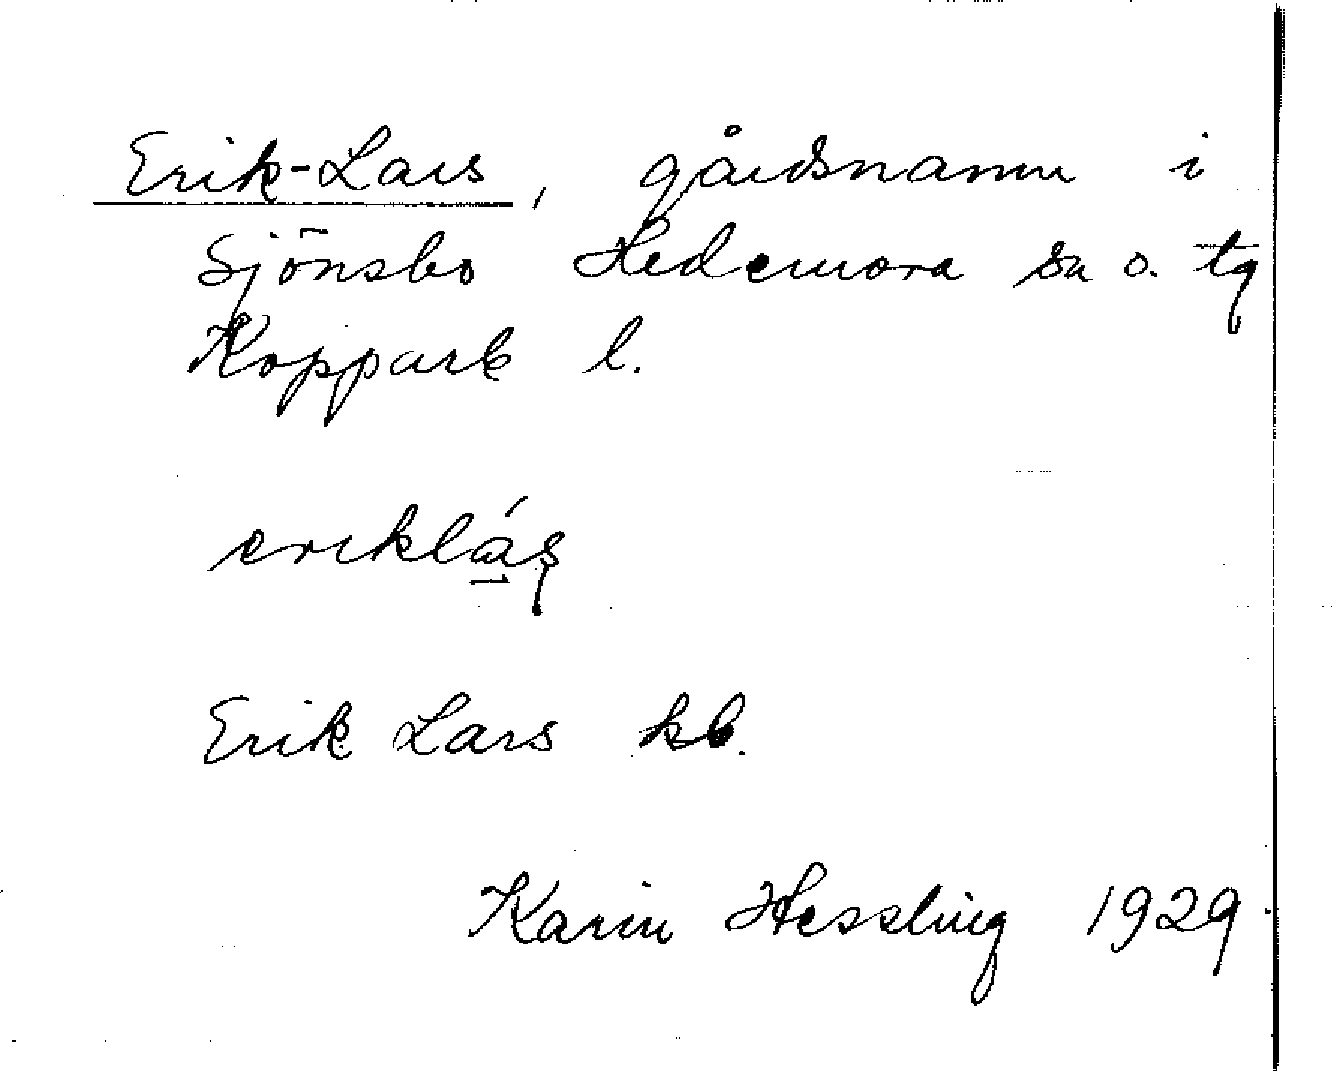 Erik-Lars, gårdsnamn i
Sjönsbo Hedemora sn o. tg
Koppark l.
eriklás̨
Erik Lars kb.
Karin Hessling 1929